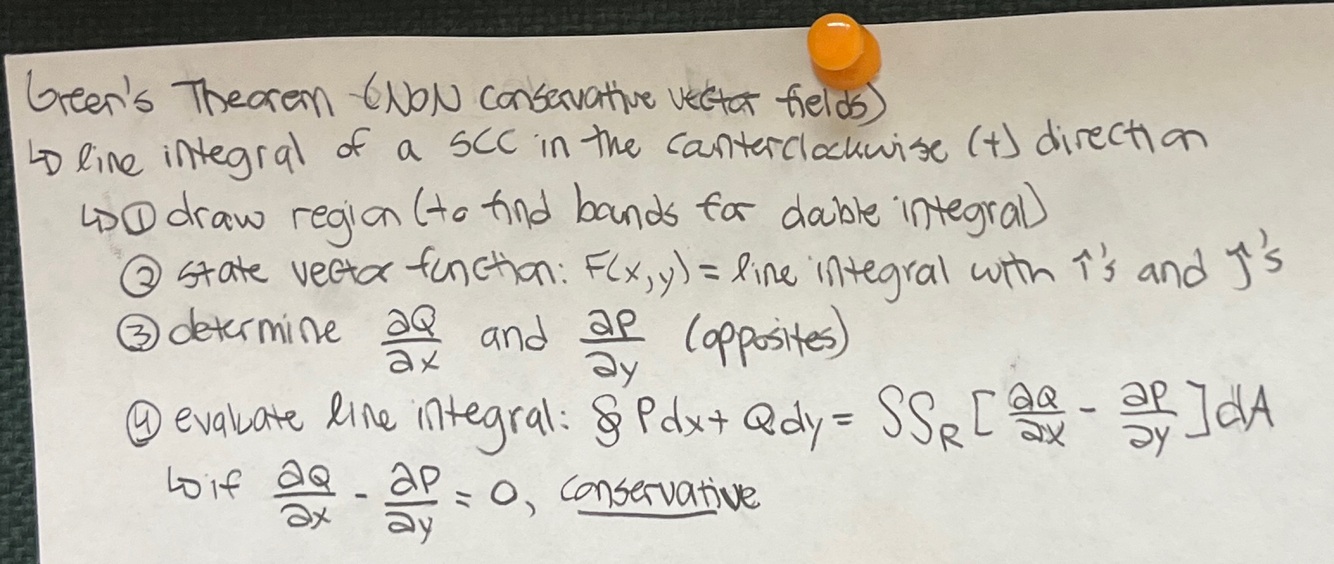 Green's Theorem - (NON conservative vector fields)
↳ line integral of a SCC in the counterclockwise (+) direction
↳ ① draw region (to find bounds for double integral)
② state vector function: F(x,y) = line integral with î's and ĵ's
③ determine ∂Q/∂x and ∂P/∂y (opposites)
④ evaluate line integral: ∮ Pdx + Qdy = ∫∫_R [∂Q/∂x - ∂P/∂y] dA
↳ if ∂Q/∂x - ∂P/∂y = 0, conservative